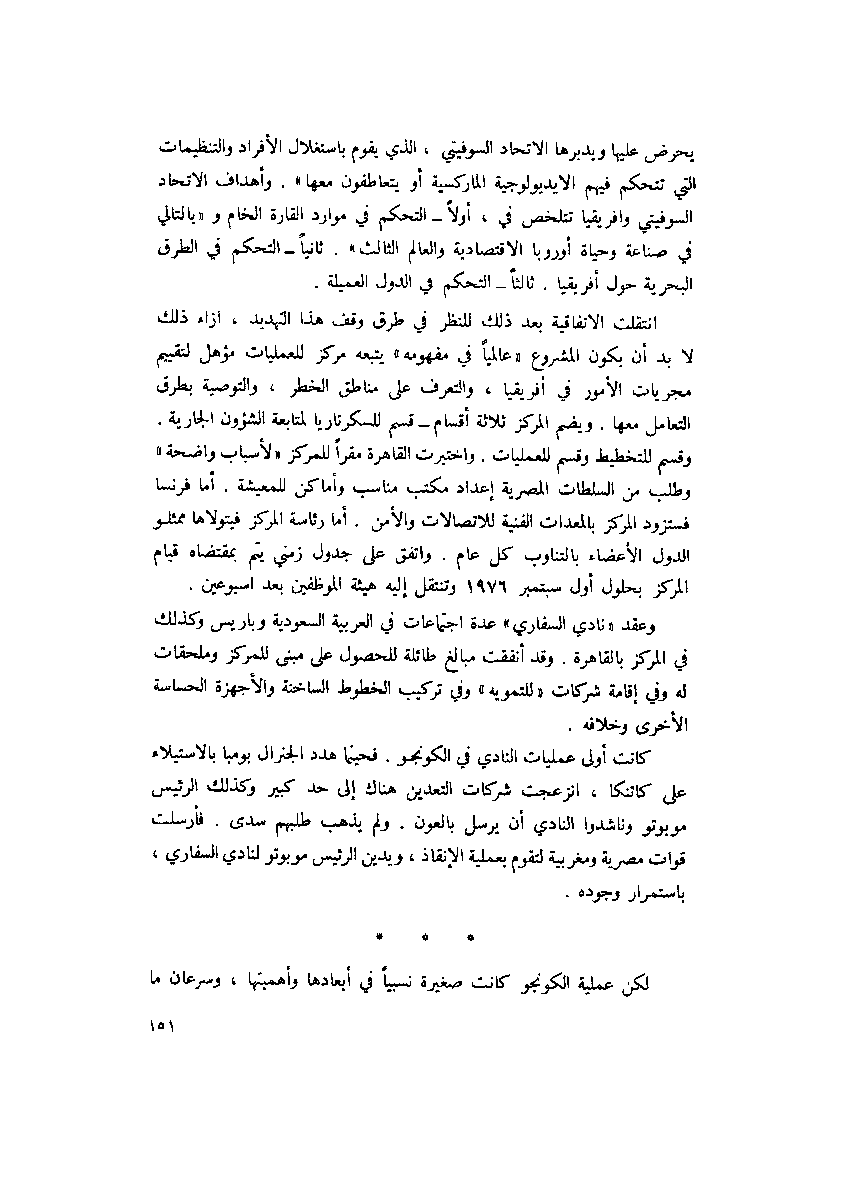 يحرض عليها ويدبرها الاتحاد السوفيتي ، الذي يقوم باستغلال الأفراد والتنظيمات
التي تتحكم فيهم الايديولوجية الماركسية أو يتعاطفون معها» . وأهداف الاتحاد
السوفيتي وافريقيا تتلخص في ، أولاً ــ التحكم في موارد القارة الخام و «بالتالي
في صناعة وحياة أوروبا الاقتصادية والعالم الثالث» . ثانياً ــ التحكم في الطرق
البحرية حول أفريقيا . ثالثاً ــ التحكم في الدول العميلة .
انتقلت الاتفاقية بعد ذلك للنظر في طرق وقف هذا التهديد ، ازاء ذلك
لا بد أن يكون المشروع «عالمياً في مفهومه» يتبعه مركز للعمليات مؤهل لتقييم
مجريات الأمور في أفريقيا ، والتعرف على مناطق الخطر ، والتوصية بطرق
التعامل معها . ويضم المركز ثلاثة أقسام ــ قسم للسكرتاريا لمتابعة الشؤون الجارية .
وقسم للتخطيط وقسم للعمليات . واختيرت القاهرة مقراً للمركز «لأسباب واضحة»
وطلب من السلطات المصرية إعداد مكتب مناسب وأماكن للمعيشة . أما فرنسا
فستزود المركز بالمعدات الفنية للاتصالات والأمن . أما رئاسة المركز فيتولاها ممثلو
الدول الأعضاء بالتناوب كل عام . واتفق على جدول زمني يتم بمقتضاه قيام
المركز بحلول أول سبتمبر ١٩٧٦ وتنتقل إليه هيئة الموظفين بعد اسبوعين .
وعقد «نادي السفاري» عدة اجتماعات في العربية السعودية وباريس وكذلك
في المركز بالقاهرة . وقد أنفقت مبالغ طائلة للحصول على مبنى للمركز وملحقات
له وفي إقامة شركات «للتمويه» وفي تركيب الخطوط الساخنة والأجهزة الحساسة
الأخرى وخلافه .
كانت أولى عمليات النادي في الكونجو . فحينما هدد الجنرال بومبا بالاستيلاء
على كاتنكا ، انزعجت شركات التعدين هناك إلى حد كبير وكذلك الرئيس
موبوتو وناشدوا النادي أن يرسل بالعون . ولم يذهب طلبهم سدى . فأرسلت
قوات مصرية ومغربية لتقوم بعملية الإنقاذ ، ويدين الرئيس موبوتو لنادي السفاري ،
باستمرار وجوده .
* * *
لكن عملية الكونجو كانت صغيرة نسبياً في أبعادها وأهميتها ، وسرعان ما
١٥١